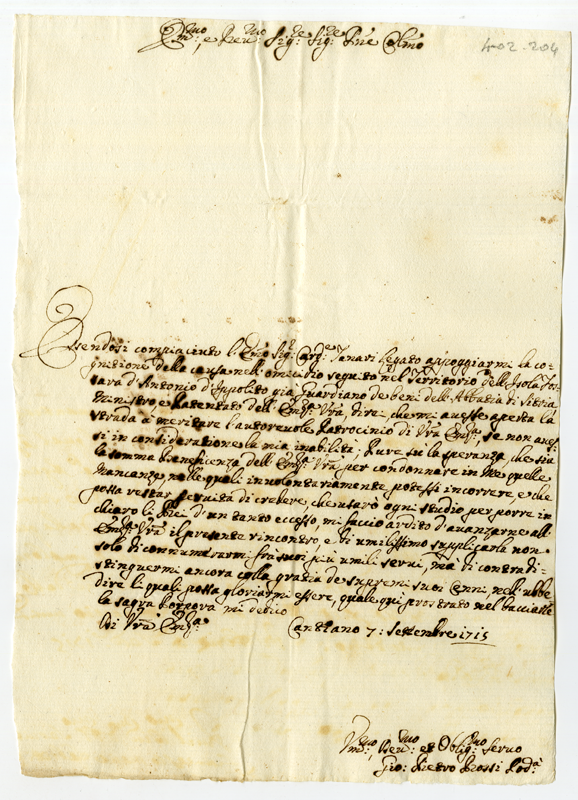 Em.mo, e Reu.mo Sig.re Sig.re Pne Col.mo
4-02-204
Essendosi compiaciuto l'Emo Sig.r Card.e Tanari legato appoggiarmi la co-
gnizione della causa nell'omicidio seguito nel Territorio dell'Isola Fos-
sara d'Antonio d'Ippolito già Guardiano de beni dell'Abbadia di Sitria
Ministro e Patentato dell'Em.za Vra, direi che mi auesse aperta la
strada à meritare l'autoreuole Patrocinio di Vra Em.za, se non auessi
si in consideratione la mia inabiltà; Pure sù la speranza che sia
la somma beneficenza dell'Em.za Vra per condonnare in me quelle
mancanze, nelle quali inuolontariamente potessi incorrere, e che
possa restar seruita di credere, che usarò ogni studio per porre in
chiaro li Rei d'un tanto eccesso, mi faccio ardito d'auanzarne all'
Em.za Vra il presente rincontro, e di umilissimo supplicarla non
solo di connumerarmi frà suoi più umili serui, mà di contradi-
stinguermi ancora colla gratia de supremi suoi Cenni, nell'ubbe
dire li quali possa gloriarmi essere, quale quì prostrato nel bacciarle
la sagra Porpora mi dedico
Di Vra Em.za
Cantiano 7: Settembre 1715
Vm.mo, Deu.mo et Oblig.mo Seruo
Gio: Pietro Rossi Pod.à